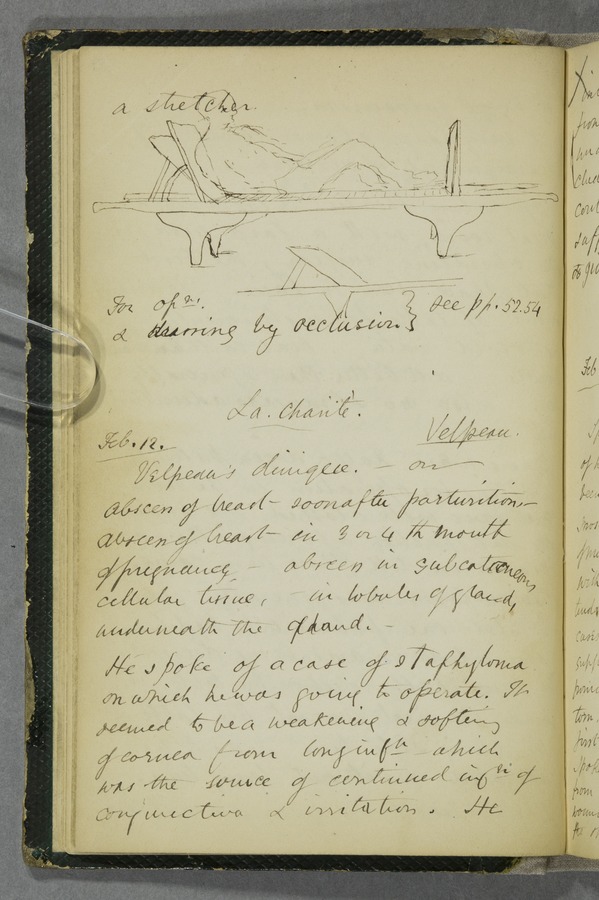 a stretcher.
For opns.
& drawing by occlusion } see pp. 52.54
La. Charité.
Feb. 12.
Velpeau.
Velpeau's clinique. — on
abscess of breast - soon after parturition -
abscess of breast - in 3 or 4th month
of pregnancy - abscess in subcutaneous
cellular tissue, - in lobules of gland,
underneath the gland. -
He spoke of a case of staphyloma
on which he was going to operate. It
seemed to be a weakening & softeng
of cornea from long infn which
was the source of continued infn of
conjunctiva & irritation. He